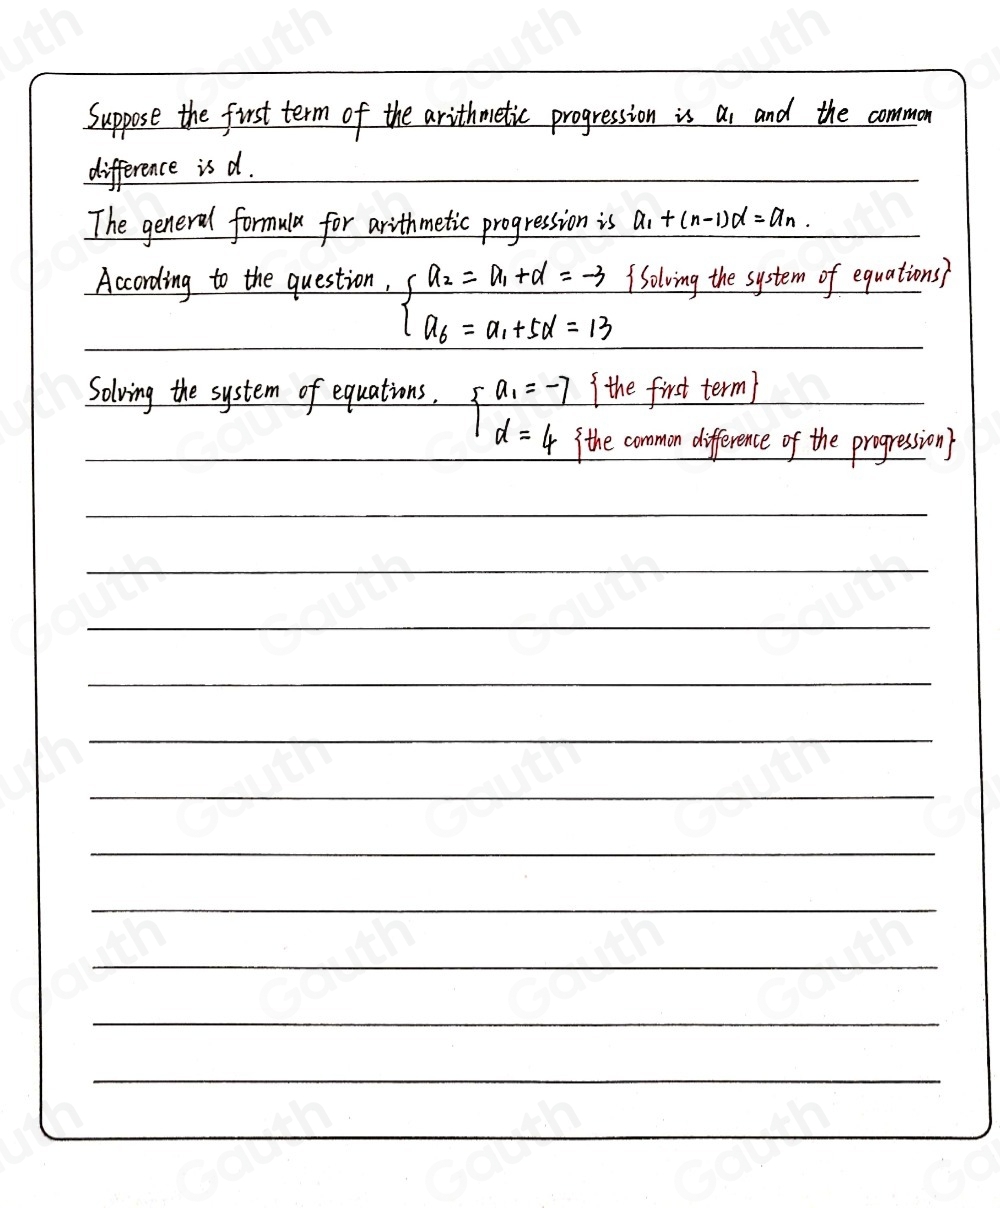 Suppose the first term of the arithmetic progression is a₁ and the common
difference is d.
The general formula for arithmetic progression is a₁+(n-1)d=aₙ.
According to the question, { a₂ = a₁+d = -3 {Solving the system of equations}
a₆ = a₁+5d = 13
Solving the system of equations. { a₁ = -7 {the first term}
d = 4 {the common difference of the progression}
Gauth